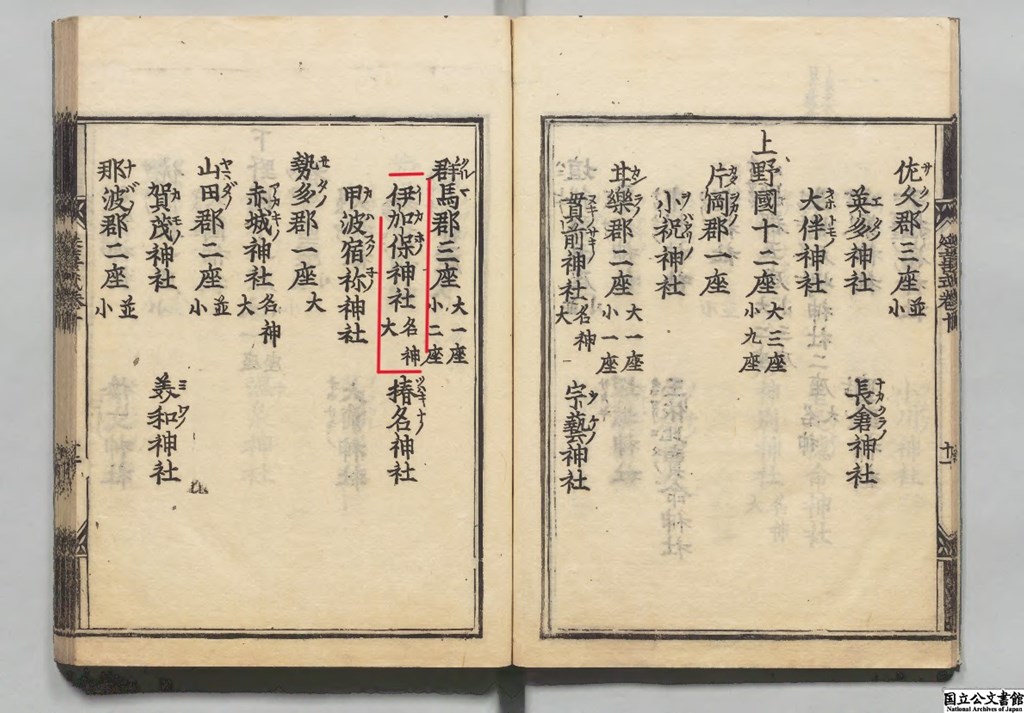 佐久郡三座並小
英多神社　長倉神社
大伴神社
上野國十二座大三座小九座
片岡郡一座
小祝神社
甘樂郡二座大一座小一座
貫前神社名神大　宇藝神社
群馬郡三座大一座小二座
伊加保神社名神大　椿名神社
甲波宿祢神社
勢多郡一座大
赤城神社名神大
山田郡二座並小
賀茂神社　美和神社
那波郡二座並小
延喜式卷十
十一
国立公文書館
National Archives of Japan